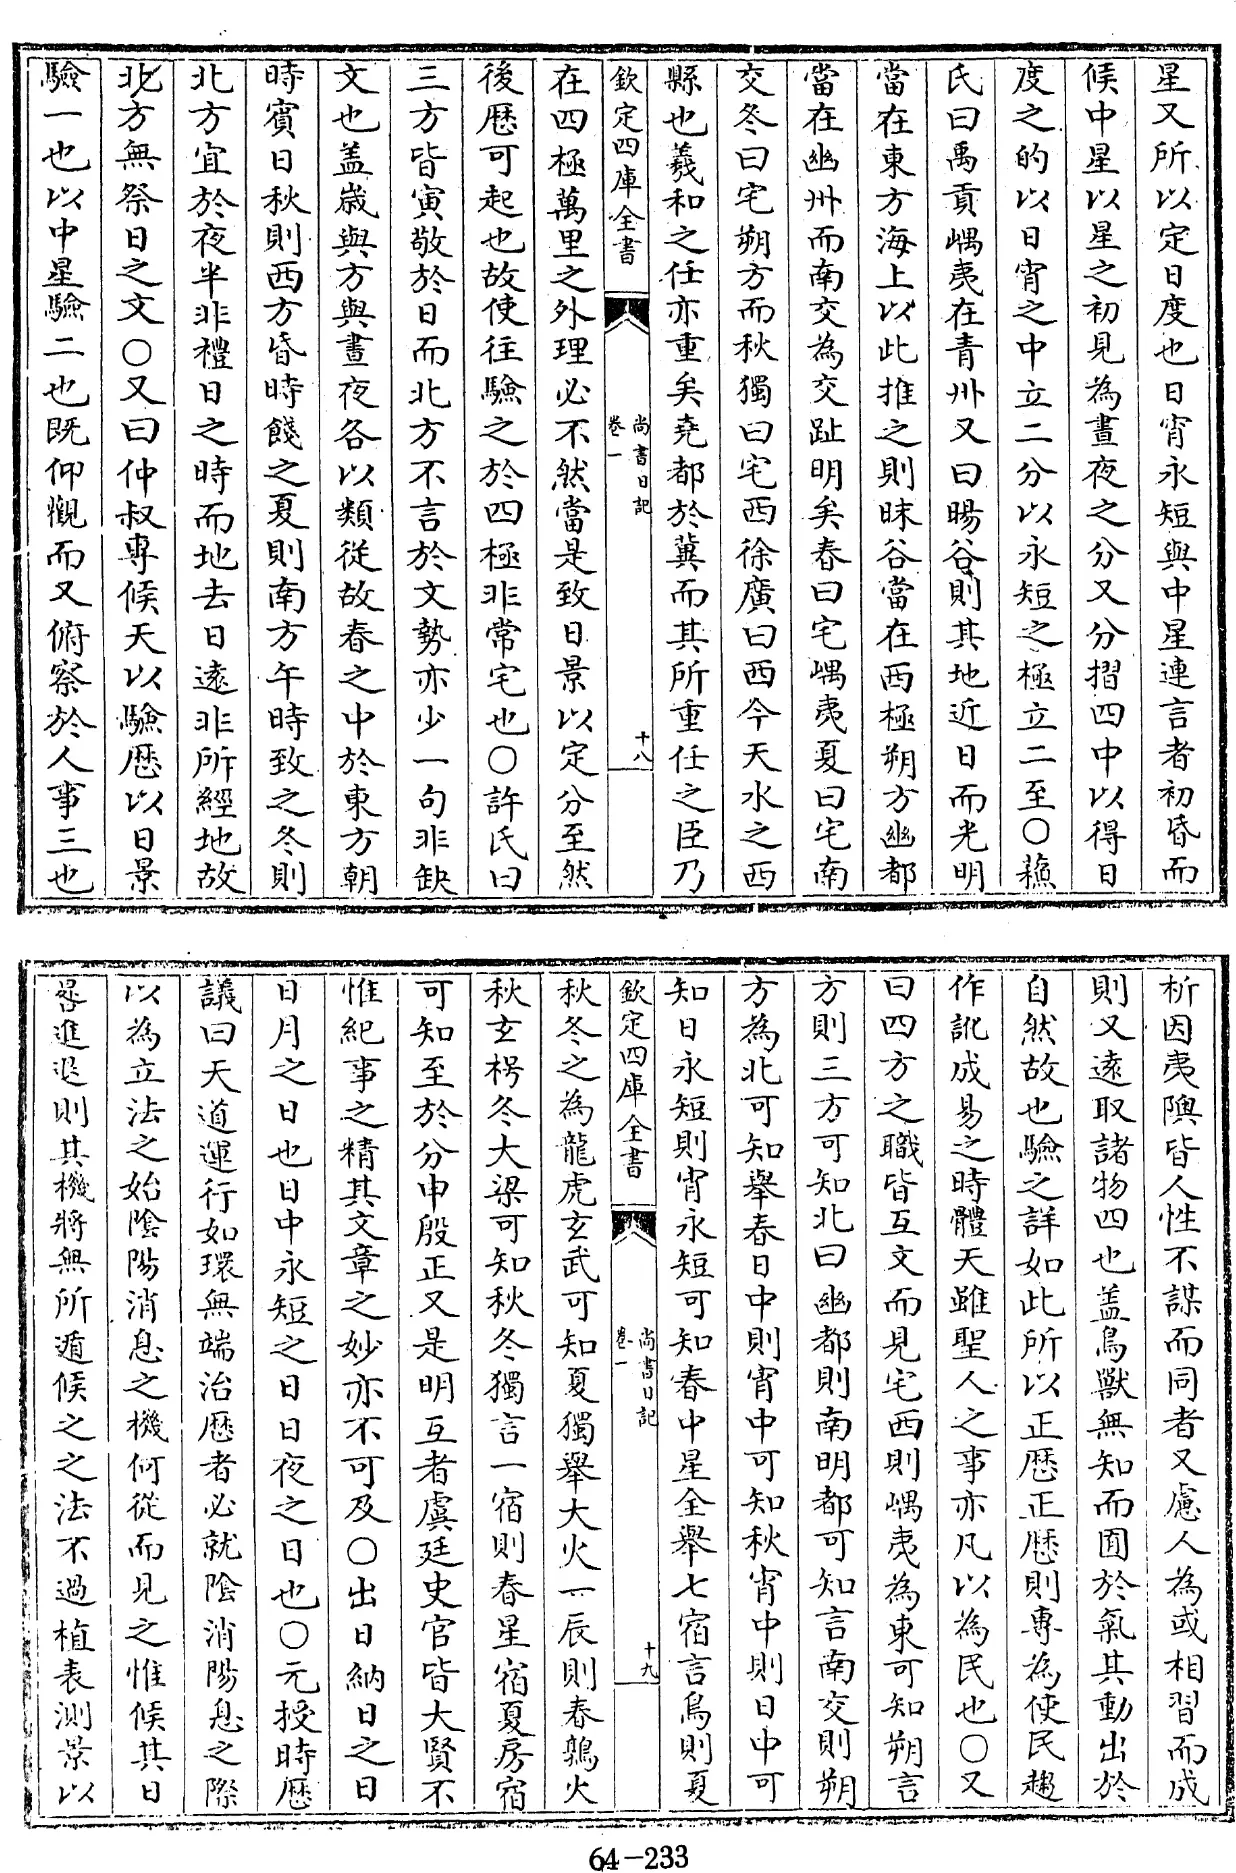 星又所以定日度也日宵永短與中星連言者初昏而
候中星以星之初見為晝夜之分又分摺四中以得日
度之的以日宵之中立二分以永短之極立二至○蘓
氏曰禹貢嵎夷在青州又曰暘谷則其地近日而光明
當在東方海上以此推之則昧谷當在西極朔方幽都
當在幽州而南交為交趾明矣春曰宅嵎夷夏曰宅南
交冬曰宅朔方而秋獨曰宅西徐廣曰西今天水之西
縣也羲和之任亦重矣堯都於冀而其所重任之臣乃
欽定四庫全書
尚書日記
卷一
十八
在四極萬里之外理必不然當是致日景以定分至然
後歷可起也故使徃驗之於四極非常宅也○許氏曰
三方皆寅敬於日而北方不言於文勢亦少一句非缺
文也盖歳與方與晝夜各以類從故春之中於東方朝
時賓日秋則西方昏時餞之夏則南方午時致之冬則
北方宜於夜半非禮日之時而地去日逺非所經地故
北方無祭日之文○又曰仲叔専候天以驗歴以日景
驗一也以中星驗二也既仰觀而又俯察於人事三也
析因夷隩皆人性不謀而同者又慮人為或相習而成
則又逺取諸物四也盖鳥獸無知而囿於氣其動出於
自然故也驗之詳如此所以正歴正歴則専為使民趨
作訛成易之時體天雖聖人之事亦凡以為民也○又
曰四方之職皆互文而見宅西則嵎夷為東可知朔言
方則三方可知北曰幽都則南明都可知言南交則朔
方為北可知舉春日中則宵中可知秋宵中則日中可
知日永短則宵永短可知春中星全舉七宿言鳥則夏
欽定四庫全書
尚書日記
卷一
十九
秋冬之為龍虎玄武可知夏獨舉大火一辰則春鶉火
秋玄枵冬大梁可知秋冬獨言一宿則春星宿夏房宿
可知至於分申殷正又是明互者虞廷史官皆大賢不
惟紀事之精其文章之妙亦不可及○出日納日之日
日月之日也日中永短之日日夜之日也○元授時歴
議曰天道運行如環無端治歴者必就陰消陽息之際
以為立法之始陰陽消息之機何從而見之惟候其日
晷進退則其機將無所遁候之之法不過植表測景以
64-233